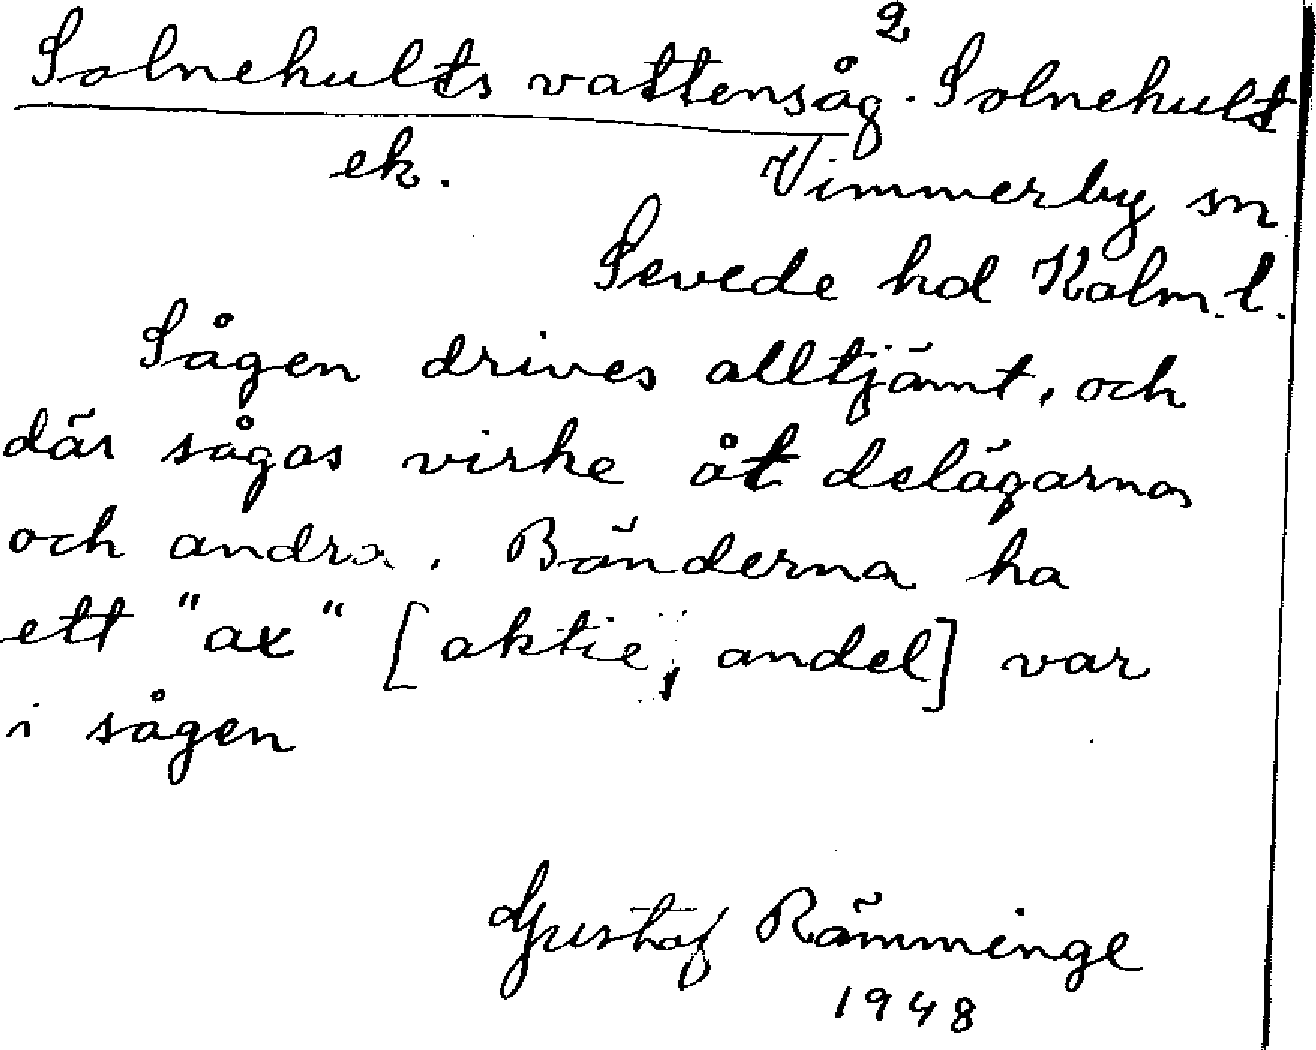 2
Solnehults vattensåg. Solnehult
ek. Vimmerby sn
Sevede hd Kalm. l.
Sågen drives alltjämt, och
där sågas virke åt delägarna
och andra. Bönderna ha
ett "ax" [aktie, andel] var
i sågen
Gustaf Rämminge
1948